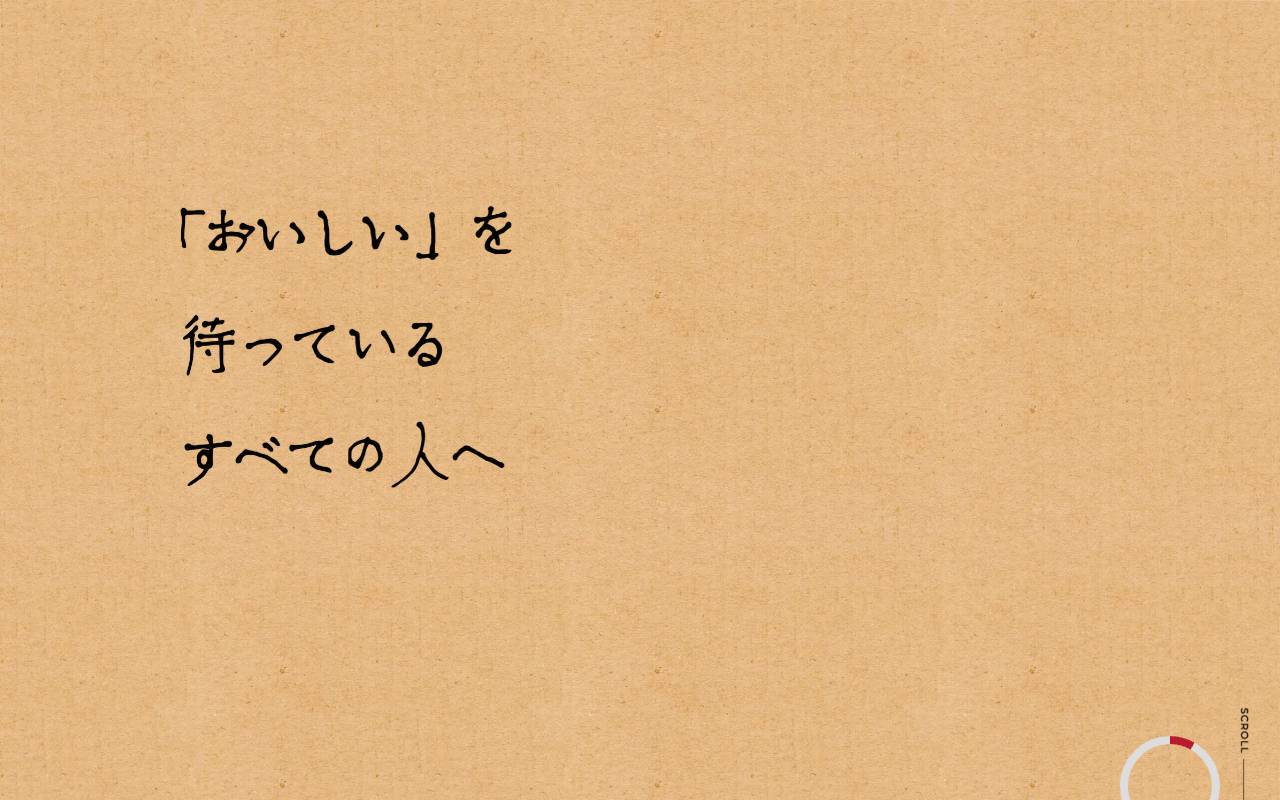 「おいしい」を
待っている
すべての人へ
SCROLL